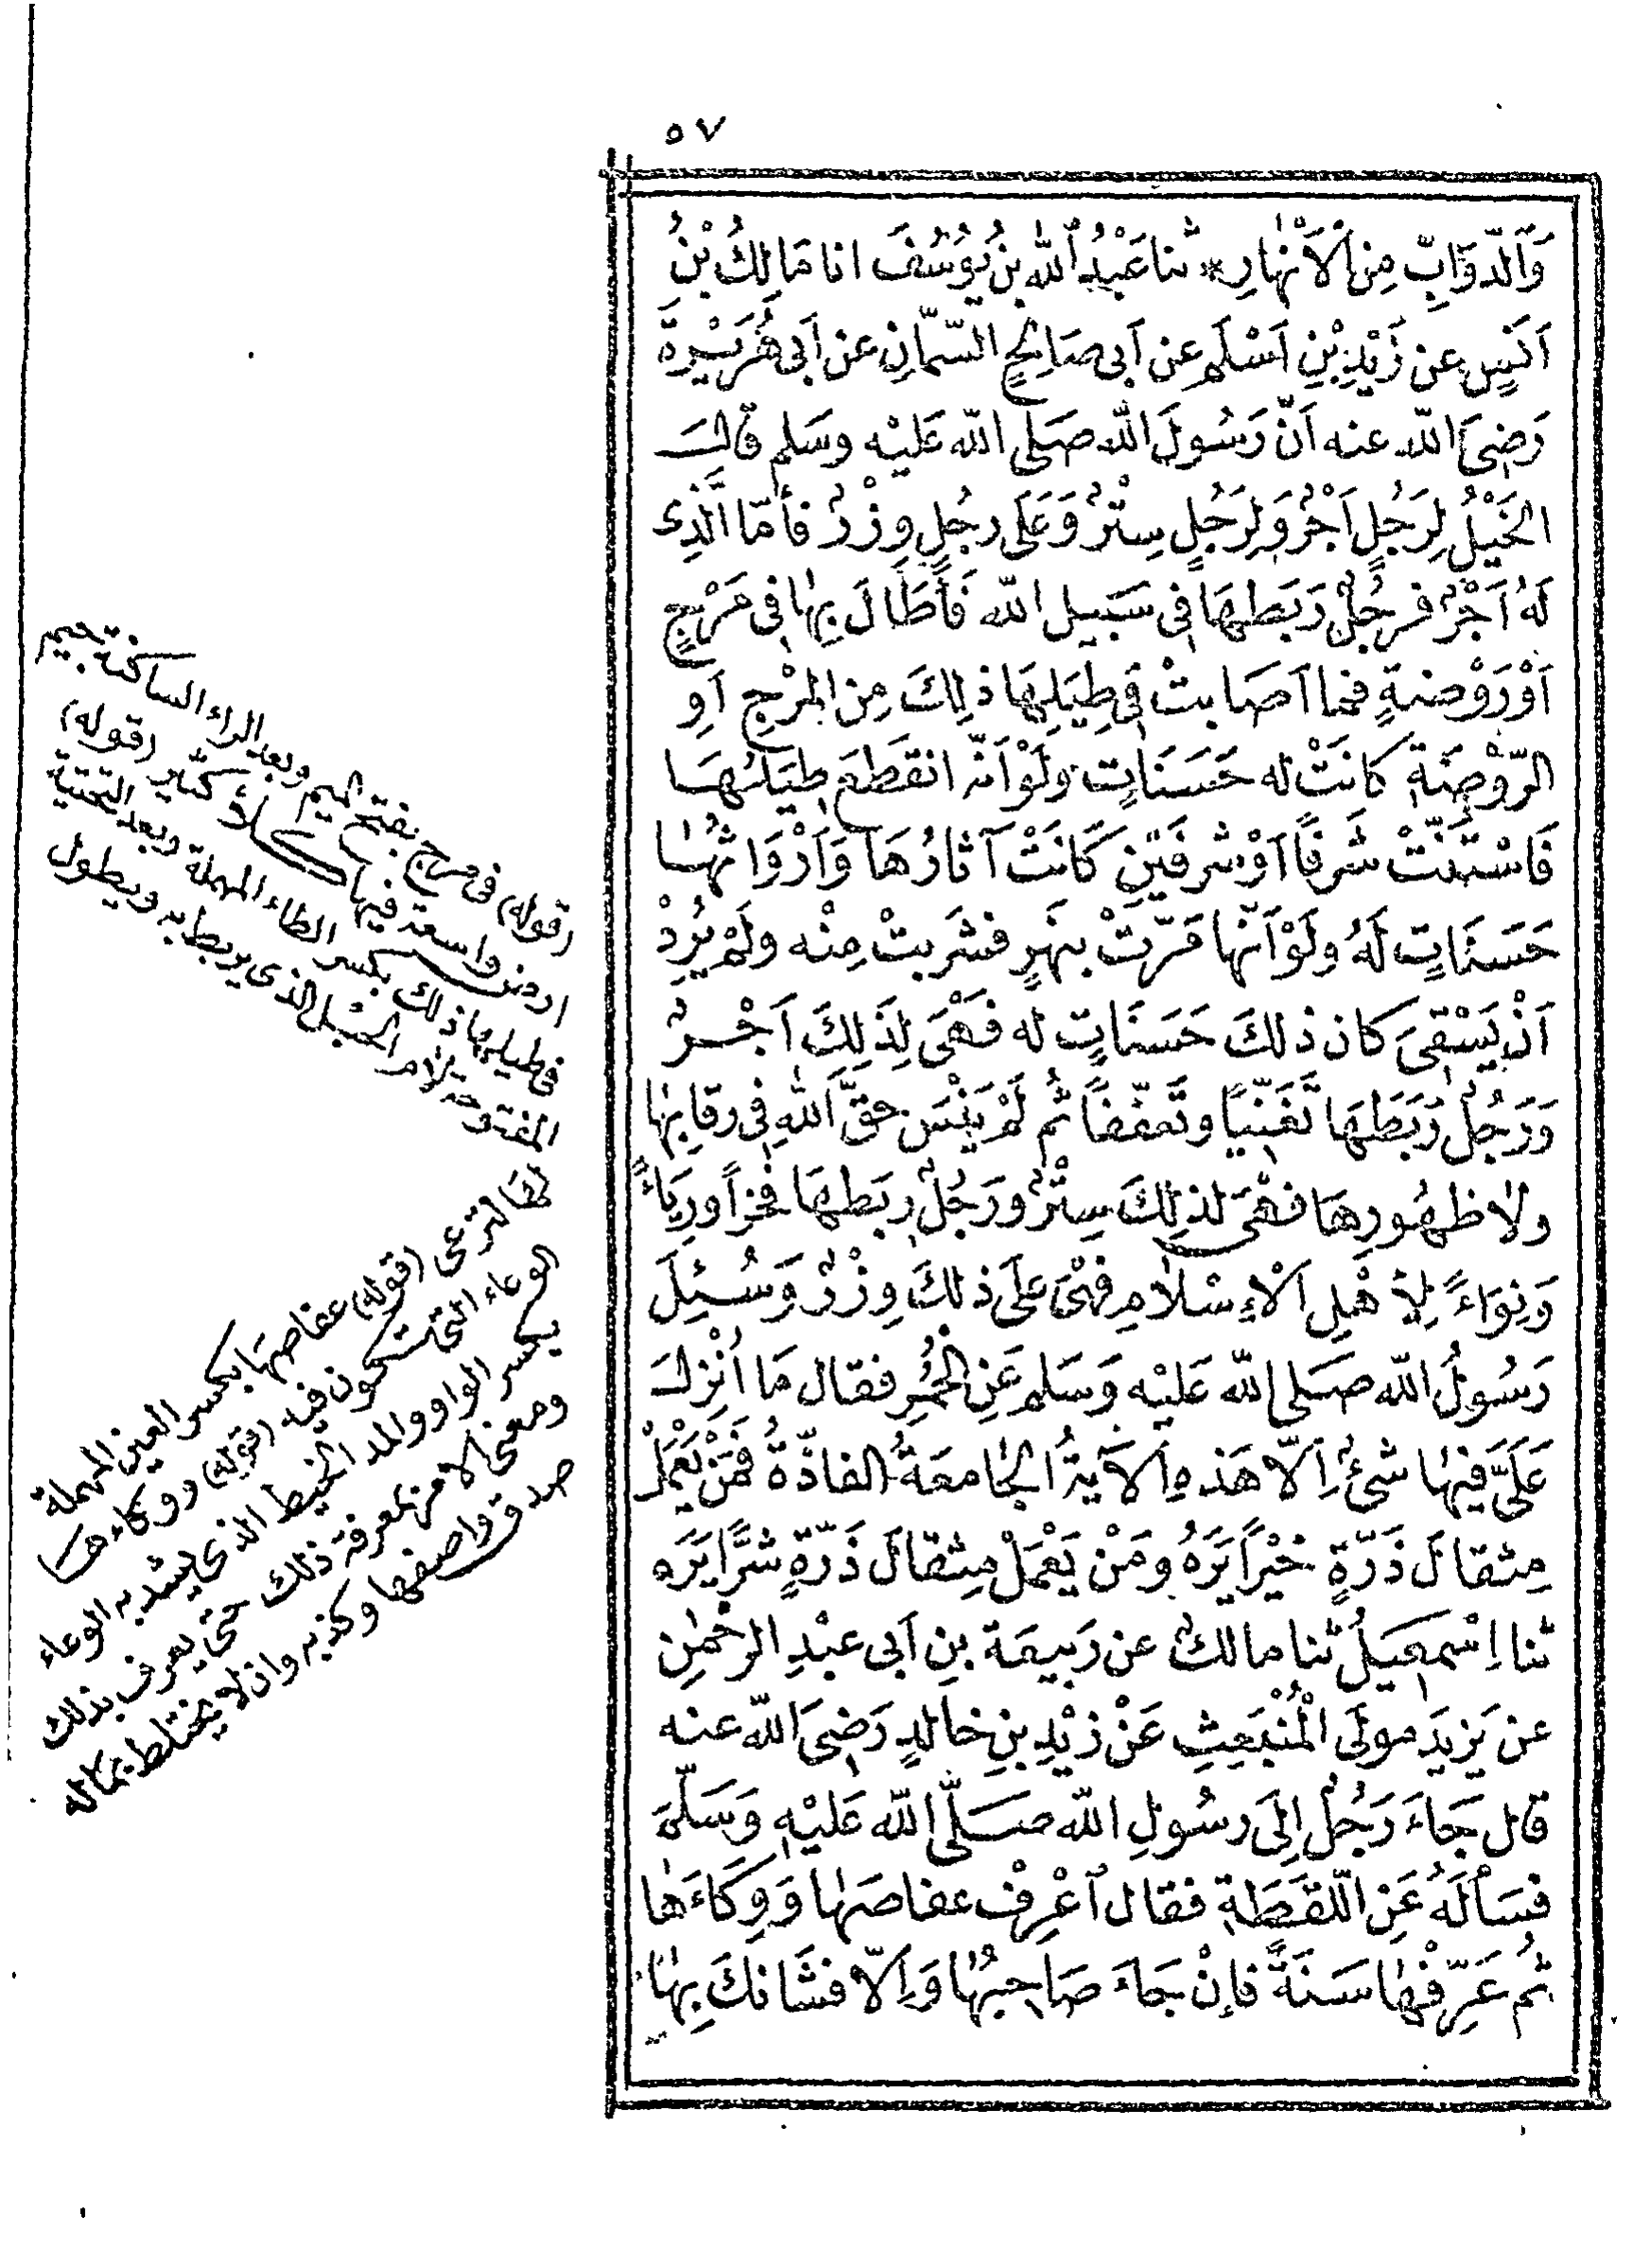 ٥٧
وَالدَّوَابِّ مِنَ الْاَنْهَارِ * ثنا عَبْدُ اللهِ بنُ يُوسُفَ انا مَالِكُ بْنُ
اَنَسٍ عن زَيْدِ بْنِ اَسْلَمَ عن اَبى صَالِحٍ السَّمَّانِ عن اَبى هُرَيْرَةَ
رَضِىَ اللهُ عنه اَنَّ رَسُولَ اللهِ صَلى اللهُ عَليْهِ وسَلم قَالَ
الخَيْلُ لِرَجُلٍ اَجْرٌ وَلِرَجُلٍ سِتْرٌ وَعَلَى رجُلٍ وِزْرٌ فأمّا الَّذِى
لَهُ اَجْرٌ فرجُلٌ رَبَطهَا فِى سَبَيِلِ الله فَأَطَالَ بِهَا فِى مَرْجٍ
اَوْ رَوْضةٍ فما اَصَابتْ فِى طِيَلِهَا ذلِكَ مِن المرْجِ اَوِ
الرَّوْضَةِ كانَتْ له حَسَنَاتٍ ولَوْ اَنّه انقَطَعَ طِيَلُهَا
فَاسْتَنَّتْ شَرَفًا اَوْ شرفَيْنِ كَانَتْ آثارُهَا وَاَرْوَاثُهَا
حَسَنَاتٍ لَهُ ولَوْ اَنَّها مَرَّتْ بنهَرٍ فشَرِبتْ مِنْه ولَمْ يُرِدْ
اَنْ يَسْقِىَ كان ذلكَ حَسَنَاتٍ له فَهْىَ لِذَلِكَ اَجْرٌ
وَرَجُلٌ رَبَطَهَا تَغَنِّيًا وتَعَفُّفًا ثُم لَمْ يَنْسَ حقَّ اللهِ فِى رقابِهَا
ولا ظهُورِهَا فهْىَ لذلِكَ سِتْرٌ ورَجُلٌ ربَطهَا فخْرًا ورِيَاءً
وَنِوَاءً لِأَهْلِ الْاِسْلَامِ فهْىَ علَى ذلكَ وِزْرٌ وَسُئِلَ
رَسُولُ اللهِ صَلى الله عَليْه وَسَلم عَنِ الحُمُرِ فقال مَا اُنْزِلَ
عَلَىَّ فِيهَا شئٌ اِلَّا هَذهِ الْآيَةُ الجَامعَةُ الفاذَّةُ فمَنْ يَعْمَلْ
مِثقالَ ذَرّةٍ خيْرًا يَرَهُ ومَنْ يَعْمَلْ مِثقالَ ذَرّةٍ شرًّا يَرَه
ثنا اِسْمعِيلُ ثنا مالكٌ عن رَبيعَة بنِ اَبى عبْدِ الرحْمٰنِ
عن يَزيدَ مولَى الْمُنْبَعِثِ عَنْ زيْدِ بنِ خالدٍ رَضِىَ الله عنه
قال جَاءَ رَجُلٌ اِلَى رسُولِ الله صَلَّى الله عَليْهِ وَسَلَّمَ
فسَألَهُ عَنِ اللّقَطَةِ فقال اعْرِفْ عفاصَهَا وَوِكَاءَها
ثُم عَرِّفْهَا سَنَةً فإنْ جَاءَ صَاحِبُهَا وَاِلّا فشَانكَ بِهَا
(قوله) فى مرج بفتح الميم وبعد الراء الساكنة جيم
ارض واسعة فيها كلأ كثير (قوله)
فى طيلها ذلك بكسر الطاء المهملة وبعد التحتية
المفتوحة لام الحبل الذى يربط به ويطول
لها لترعى (قوله) عفاصها بكسر العين المهملة
الوعاء التى تكون فيه (قوله) ووكاءها
بكسر الواو والمد الخيط الذى يشد به الوعاء
ومعنى الامر بمعرفة ذلك حتى يعرف بذلك
صدق واصفها وكذبه وان لا يختلط بماله